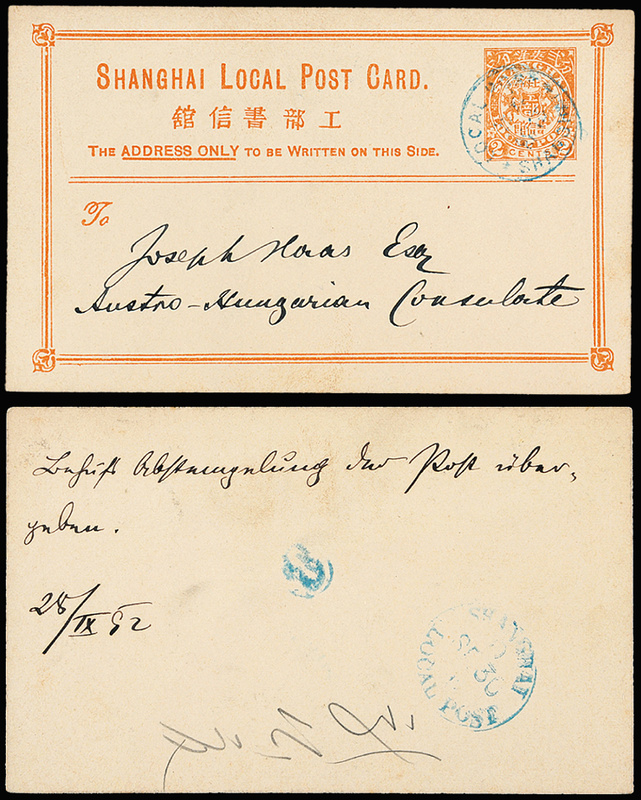 SHANGHAI LOCAL POST CARD.
館信書部工
THE ADDRESS ONLY TO BE WRITTEN ON THIS SIDE.
2 CENTS
LOCAL POST SHANGHAI
To
Joseph Haas Esq
Austro-Hungarian Consulate
Behufs Abstempelung der Post über-
geben.
28/IX 92
SHANGHAI LOCAL POST